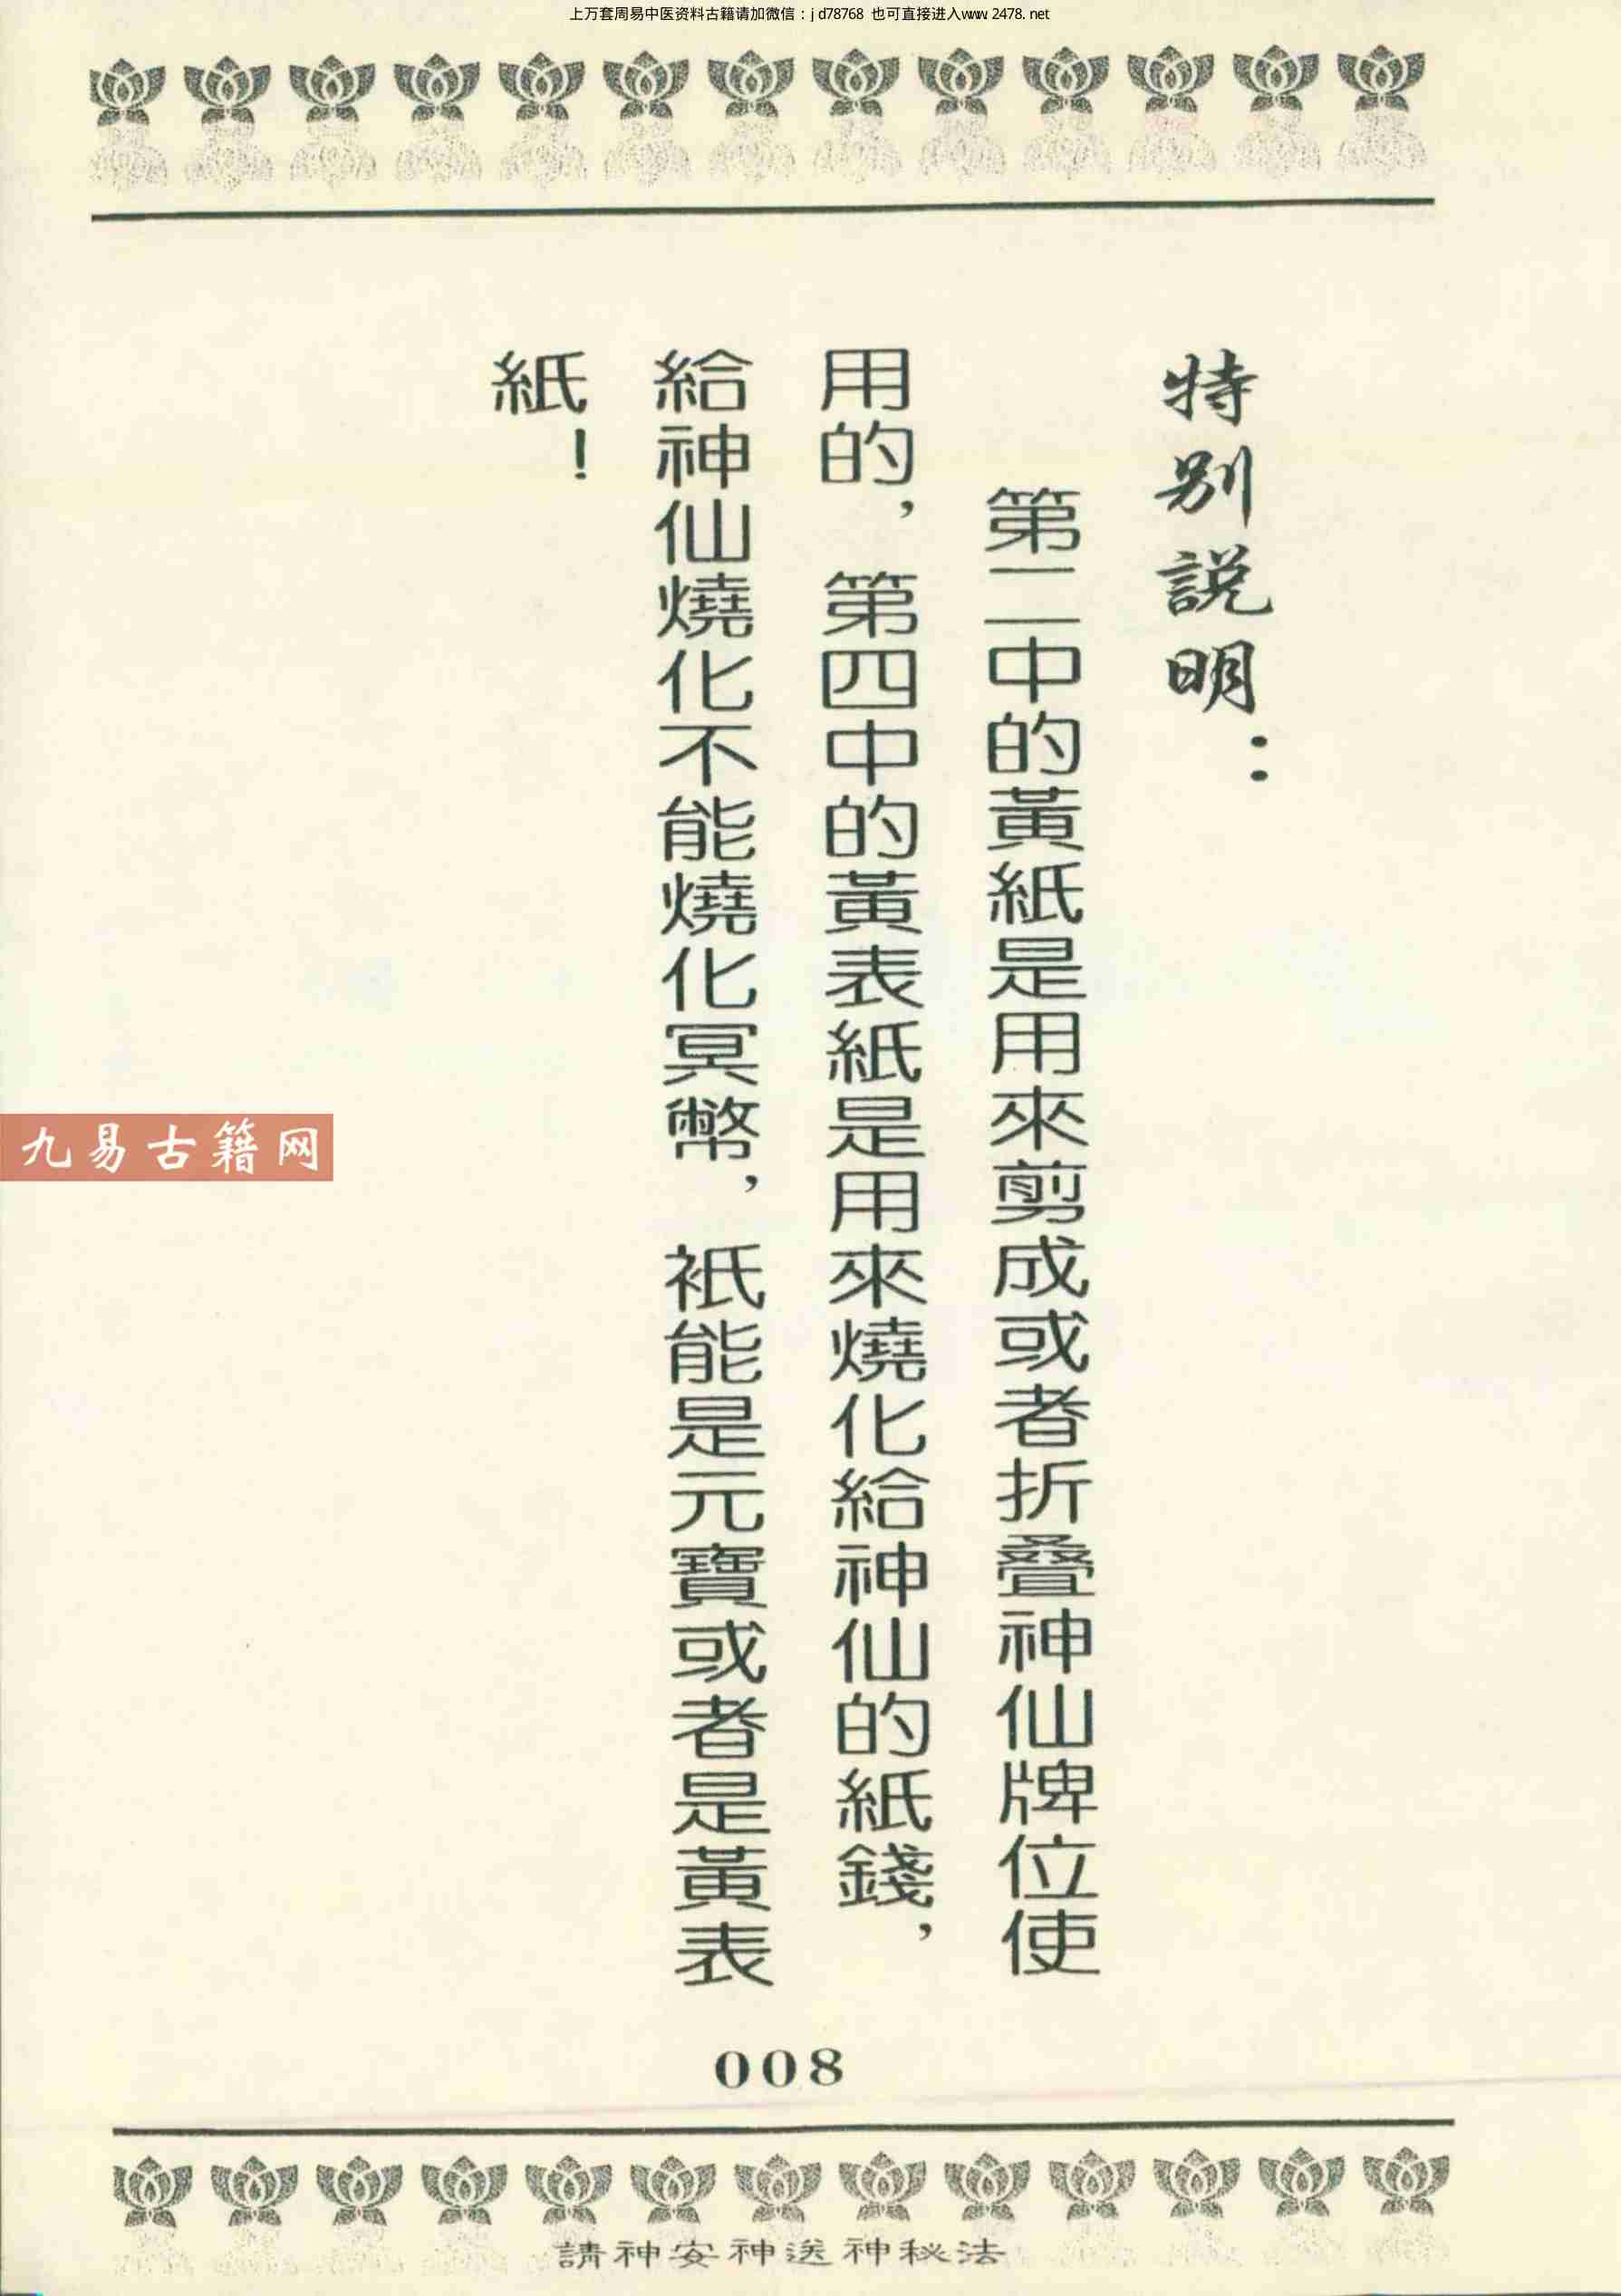 上万套周易中医资料古籍请加微信：jd78768 也可直接进入www.2478.net
特别説明：
第二中的黃紙是用來剪成或者折叠神仙牌位使
用的，第四中的黃表紙是用來燒化給神仙的紙錢，
給神仙燒化不能燒化冥幣，祇能是元寶或者是黃表
紙！
九易古籍网
008
請神安神送神秘法